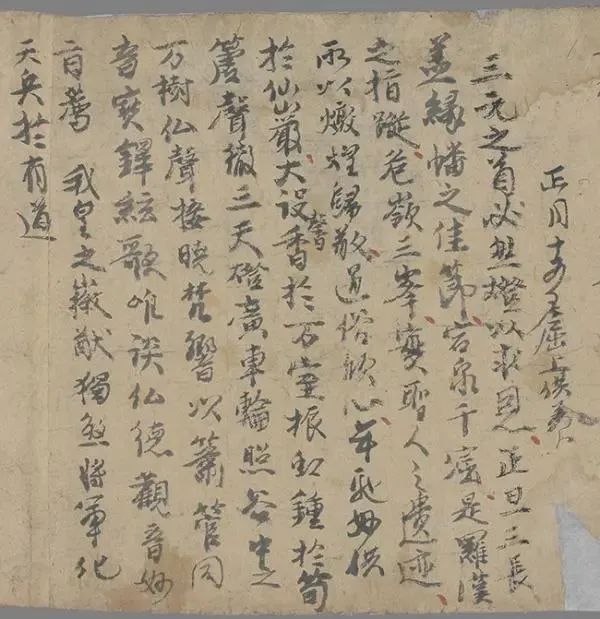 正月十五日窟上供養
三元之首必燃燈以求恩正旦三長
蓋緣幡之佳節宕泉千窟是羅漢
之指蹤危嶺三峯實聖人之遺迹
所以燉煌歸敬道俗傾心年馳妙供
於仙巖大設馨香於万室振虹鍾於筍
簴聲徹三天燈廣車輪照谷中之
万樹仏聲接曉梵響以簫管同
音寶鐸絃歌唯談仏德觀音妙
旨薦 我皇之徽猷獨煞將軍化
天兵於有道